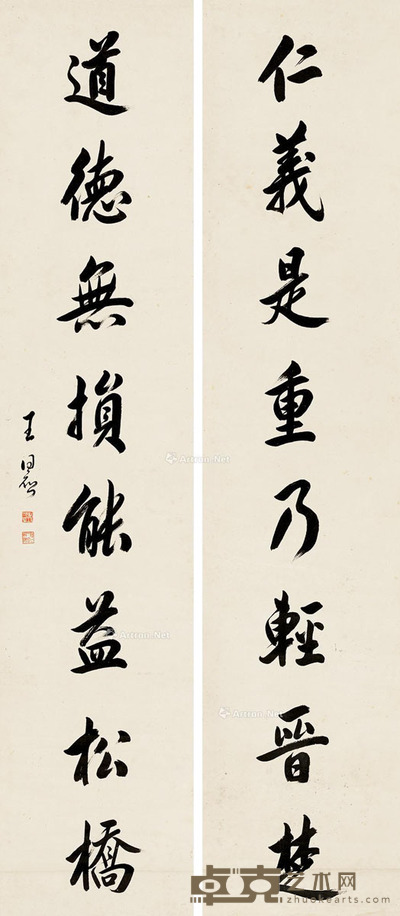 仁義是重乃輕晉楚
道德無損能益松橋
王同愈
Artron.Net
Artron.Net
Artron.Net
Artron.Net
卓克艺术网
zhuokearts.com